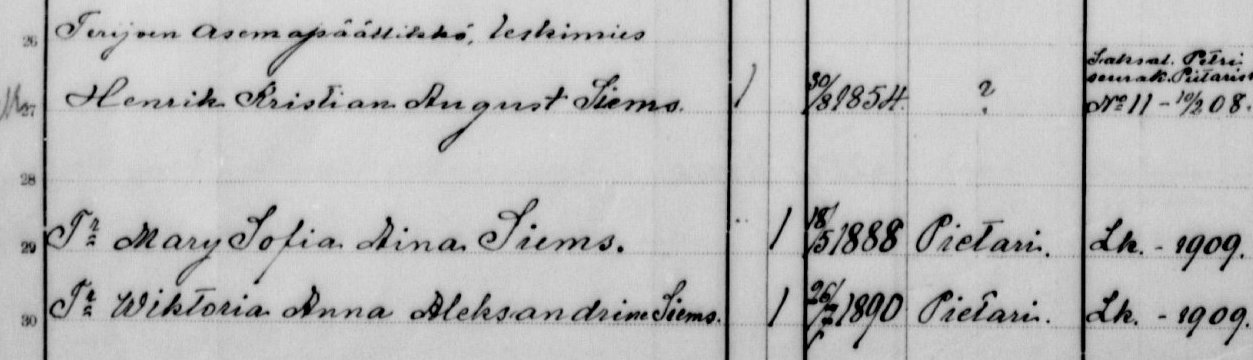 26 Terijoen asemapäällikkö, leskimies
27 Henrik Kristian August Siems. 1 30/8 1854. ? Saksal. Petri seurak. Pietarist No 11 - 10/2 08.
28
29 Tr Mary Sofia Aina Siems. 1 18/5 1888 Pietari. Lk. - 1909.
30 Tr Wiktoria Anna Aleksandrine Siems. 1 26/7 1890 Pietari. Lk. - 1909.